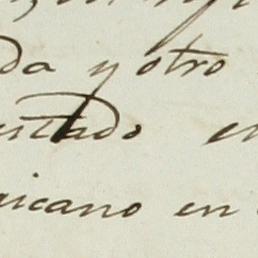 da y otro
ustado en
icano en